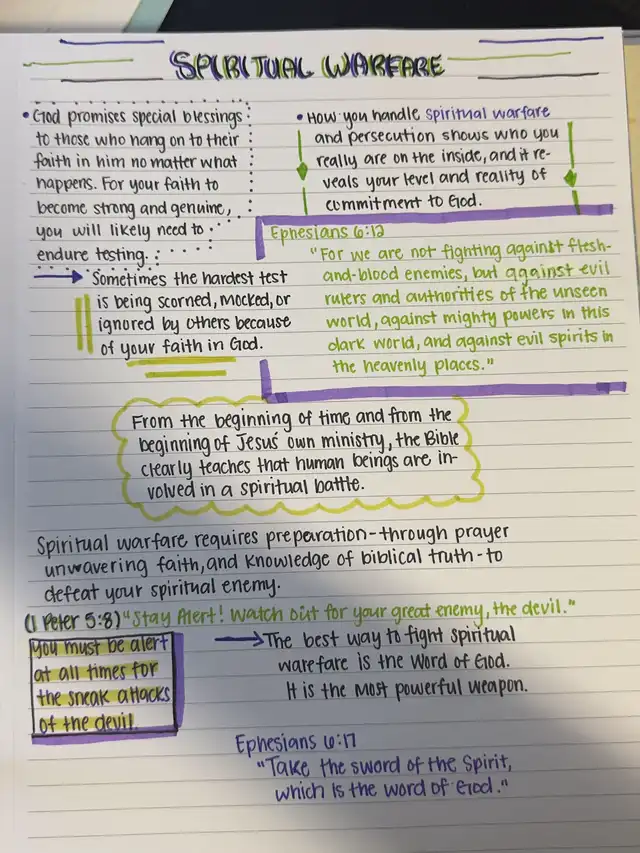 SPIRITUAL WARFARE
• God promises special blessings
to those who hang on to their
faith in him no matter what
happens. For your faith to
become strong and genuine,
you will likely need to
endure testing.
→ Sometimes the hardest test
is being scorned, mocked, or
ignored by others because
of your faith in God.
• How you handle spiritual warfare
and persecution shows who you
really are on the inside, and it re-
veals your level and reality of
commitment to God.
Ephesians 6:12
"For we are not fighting against flesh-
and-blood enemies, but against evil
rulers and authorities of the unseen
world, against mighty powers in this
dark world, and against evil spirits in
the heavenly places."
From the beginning of time and from the
beginning of Jesus' own ministry, the Bible
clearly teaches that human beings are in-
volved in a spiritual battle.
Spiritual warfare requires preparation-through prayer
unwavering faith, and knowledge of biblical truth-to
defeat your spiritual enemy.
(1 Peter 5:8) "Stay Alert! Watch out for your great enemy, the devil."
You must be alert
at all times for
the sneak attacks
of the devil.
→ The best way to fight spiritual
warefare is the Word of God.
It is the most powerful weapon.
Ephesians 6:17
"Take the sword of the Spirit,
which is the word of God."